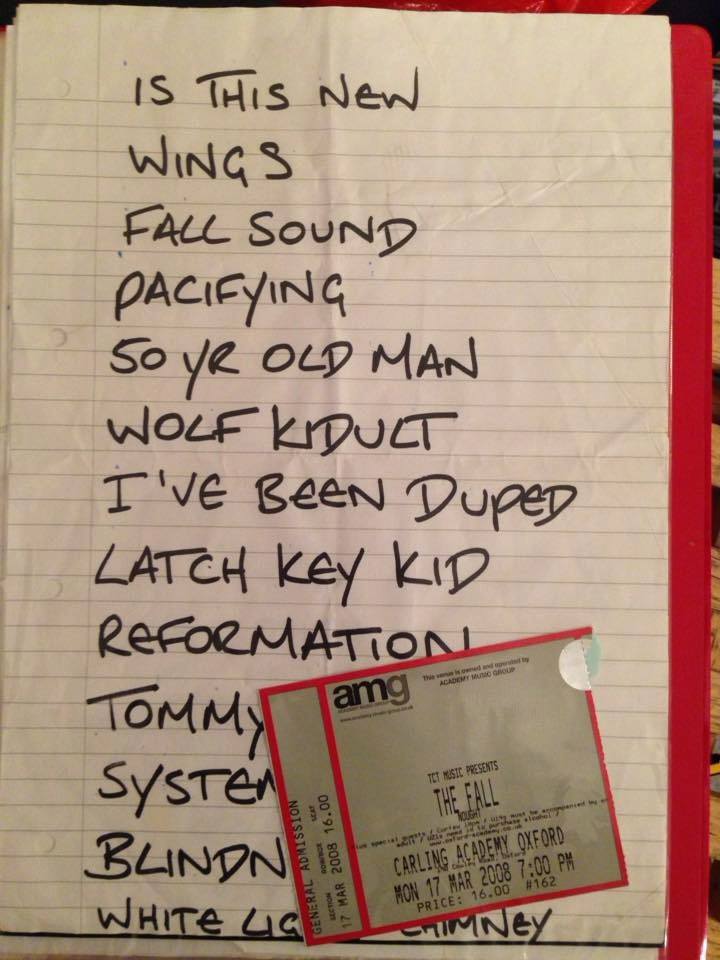 IS THIS NEW
WINGS
FALL SOUND
PACIFYING
50 YR OLD MAN
WOLF KIDULT
I'VE BEEN DUPED
LATCH KEY KID
REFORMATION
TOMMY
SYSTEM
BLINDN
WHITE LIG CHIMNEY
GENERAL ADMISSION
SECTION ROW/BOX SEAT
17 MAR 2008 16.00
amg
ACADEMY MUSIC GROUP
www.academy-music-group.co.uk
This venue is owned and operated by
ACADEMY MUSIC GROUP
TCT MUSIC PRESENTS
THE FALL
NOUGHT
special guests / Curfew / U14s must be accompanied by an
adult / U21s need id to purchase alcohol /
www.oxford-academy.co.uk
CARLING ACADEMY OXFORD
Cowley Road Oxford
MON 17 MAR 2008 7:00 PM
PRICE: 16.00 #162